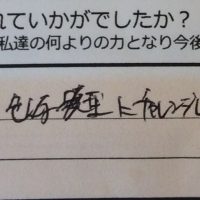 れていかがでしたか？
私達の何よりの力となり今後
にチャレンジし